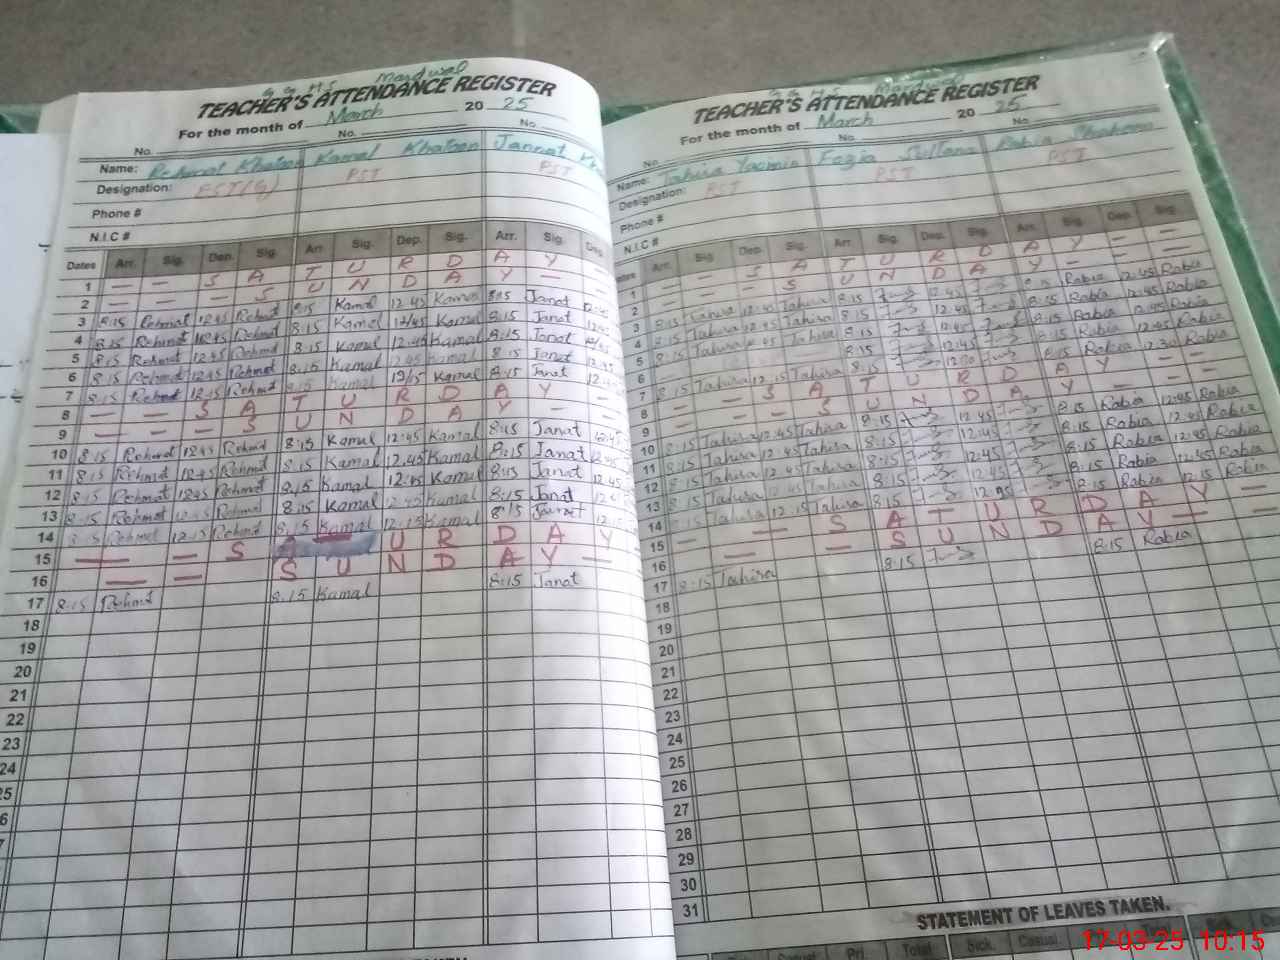 G G H S Mardwal
TEACHER'S ATTENDANCE REGISTER
For the month of March 20 25
No. No. No.
Name: Rehmat Khatoon Kamal Khatoon Jannat
Designation: EST(G) PST PST
Phone #
N.I.C #
Dates Arr. Sig. Dep. Sig. Arr. Sig. Dep. Sig. Arr. Sig. Dep.
1 — — S A T U R D A Y —
2 — — S U N D A Y —
3 8:15 Rehmat 12:45 Rehmat 8:15 Kamal 12:45 Kamal 8:15 Janat 12:45
4 8:15 Rehmat 12:45 Rehmat 8:15 Kamal 12/45 Kamal 8:15 Janat 12:45
5 8:15 Rehmat 12:45 Rehmat 8:15 Kamal 12:45 Kamal 8:15 Janat 12/45
6 8:15 Rehmat 12:45 Rehmat 8:15 Kamal 12:45 Kamal 8:15 Janat 12:45
7 8:15 Rehmat 12:15 Rehmat 8:15 Kamal Kamal 8:15 Janat
8 — — S A T U R D A Y —
9 — — S U N D A Y —
10 8:15 Rehmat 12:45 Rehmat 8:15 Kamal 12:45 Kamal 8:45 Janat 12:45
11 8:15 Rehmat 12:45 Rehmat 8:15 Kamal 12:45 Kamal 8:15 Janat 12:45
12 8:15 Rehmat 12:45 Rehmat 8:15 Kamal Kamal 8:15 Janat 12:45
13 8:15 Rehmat 12:45 Rehmat 8:15 Kamal 12:45 Kamal 8:15 Janat
14 8:15 Rehmat 12:15 Rehmat 8:15 Kamal 12:15 Kamal 8:15 Jannat 12:15
15 — — S U R D A Y
16 — — S U N D A Y —
17 8:15 Rehmat 8:15 Kamal 8:15 Janat
18
19
20
21
22
23
24
25
6
7
G G H S Mardwal
TEACHER'S ATTENDANCE REGISTER
For the month of March 20 25
No. No. No.
Name: Tahira Yasmin Fozia Sultana Rabia
Designation: PST PST PST
Phone #
N.I.C #
Dates Arr. Sig. Dep. Sig. Arr. Sig. Dep. Sig. Arr. Sig. Dep. Sig.
1 — — S A T U R D A Y — —
2 — — — S U N D A Y — —
3 8:15 Tahira 12:45 Tahira 8:15 12:45 8:15 Rabia 12:45 Rabia
4 8:15 Tahira 12:45 Tahira 8:15 12:45 8:15 Rabia 12:45 Rabia
5 8:15 Tahira Tahira 8:15 12:45 8:15 Rabia 12:45 Rabia
6 8:15 12:45 8:15 Rabia 12:45 Rabia
7 8:15 Tahira 12:15 Tahira 8:15 8:15 Rabia Rabia
8 — — S A T U R D A Y — —
9 — — — S U N D A Y — —
10 8:15 Tahira 12:45 Tahira 8:15 12:45 8:15 Rabia 12:45 Rabia
11 8:15 Tahira 12:45 Tahira 8:15 12:45 8:15 Rabia 12:45 Rabia
12 8:15 Tahira 12:45 Tahira 8:15 12:45 8:15 Rabia 12:45 Rabia
13 8:15 Tahira 12:45 Tahira 8:15 12:45 8:15 Rabia 12:45 Rabia
14 8:15 Tahira Tahira 8:15 8:15 Rabia 12:15 Rabia
15 — — S A T U R D A Y —
16 — — S U N D A Y — —
17 8:15 Tahira 8:15 8:15 Rabia
18
19
20
21
22
23
24
25
26
27
28
29
30
31
STATEMENT OF LEAVES TAKEN.
Casual Pri. Total Sick. Casual
17-03-25 10:15